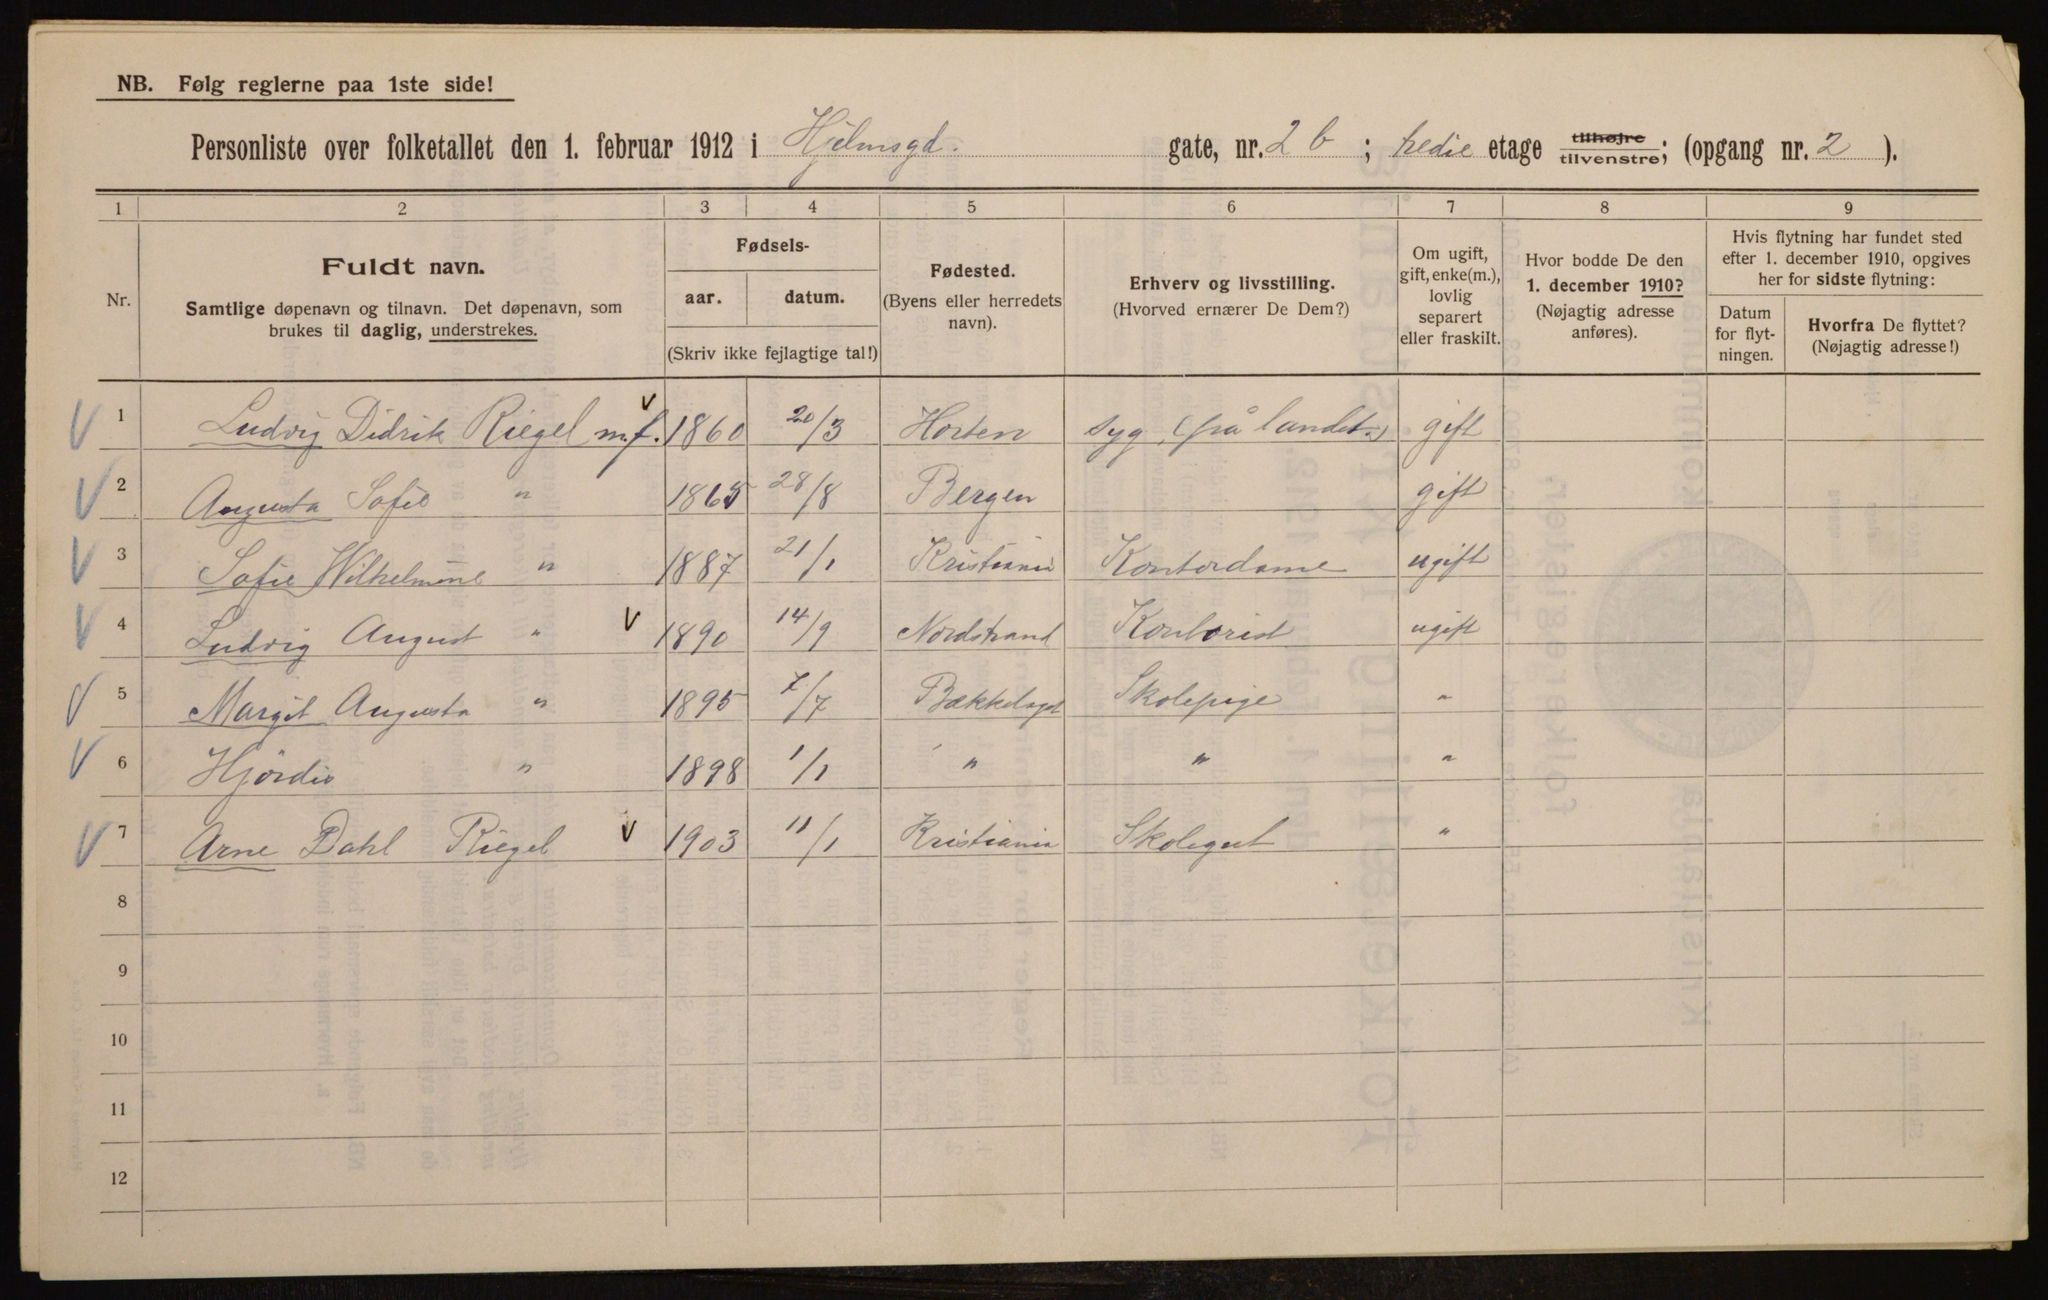 NB. Følg reglerne paa 1ste side!
Personliste over folketallet den 1. februar 1912 i Hjelmsgd. gate, nr. 2 b ; tredie etage tilhøjre tilvenstre; (opgang nr. 2 ).
1 2 3 4 5 6 7 8 9
Nr.
Fuldt navn.
Samtlige døpenavn og tilnavn. Det døpenavn, som
brukes til daglig, understrekes.
Fødsels-
aar. datum.
(Skriv ikke fejlagtige tal!)
Fødested.
(Byens eller herredets
navn).
Erhverv og livsstilling.
(Hvorved ernærer De Dem?)
Om ugift,
gift, enke(m.),
lovlig
separert
eller fraskilt.
Hvor bodde De den
1. december 1910?
(Nøjagtig adresse
anføres).
Hvis flytning har fundet sted
efter 1. december 1910, opgives
her for sidste flytning:
Datum
for flyt-
ningen.
Hvorfra De flyttet?
(Nøjagtig adresse!)
V 1 Ludvig Didrik Riegel m.f. V 1860 20/3 Horten syg (på landet) gift
V 2 Augusta Sofie " 1865 28/8 Bergen gift
V 3 Sofie Wilhelmine " 1887 21/1 Kristiania Kontordame ugift
V 4 Ludvig August " V 1890 14/9 Nordstrand Kontorist ugift
V 5 Margit Augusta " 1895 7/7 Bækkelaget Skolepige "
V 6 Hjördis " 1898 1/1 " " "
V 7 Arne Dahl Riegel V 1903 11/1 Kristiania Skolegut "
8
9
10
11
12